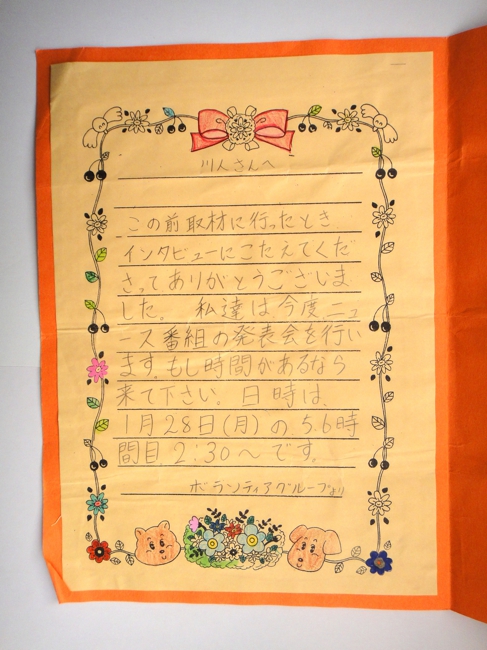 川人さんへ
この前取材に行ったとき
インタビューにこたえてくだ
さってありがとうございま
した。 私達は今度、ニュ
ース番組の発表会を行い
ます。もし時間があるなら
来て下さい。日時は、
1月28日(月)の5.6時
間目 2:30～です。
ボランティアグループより